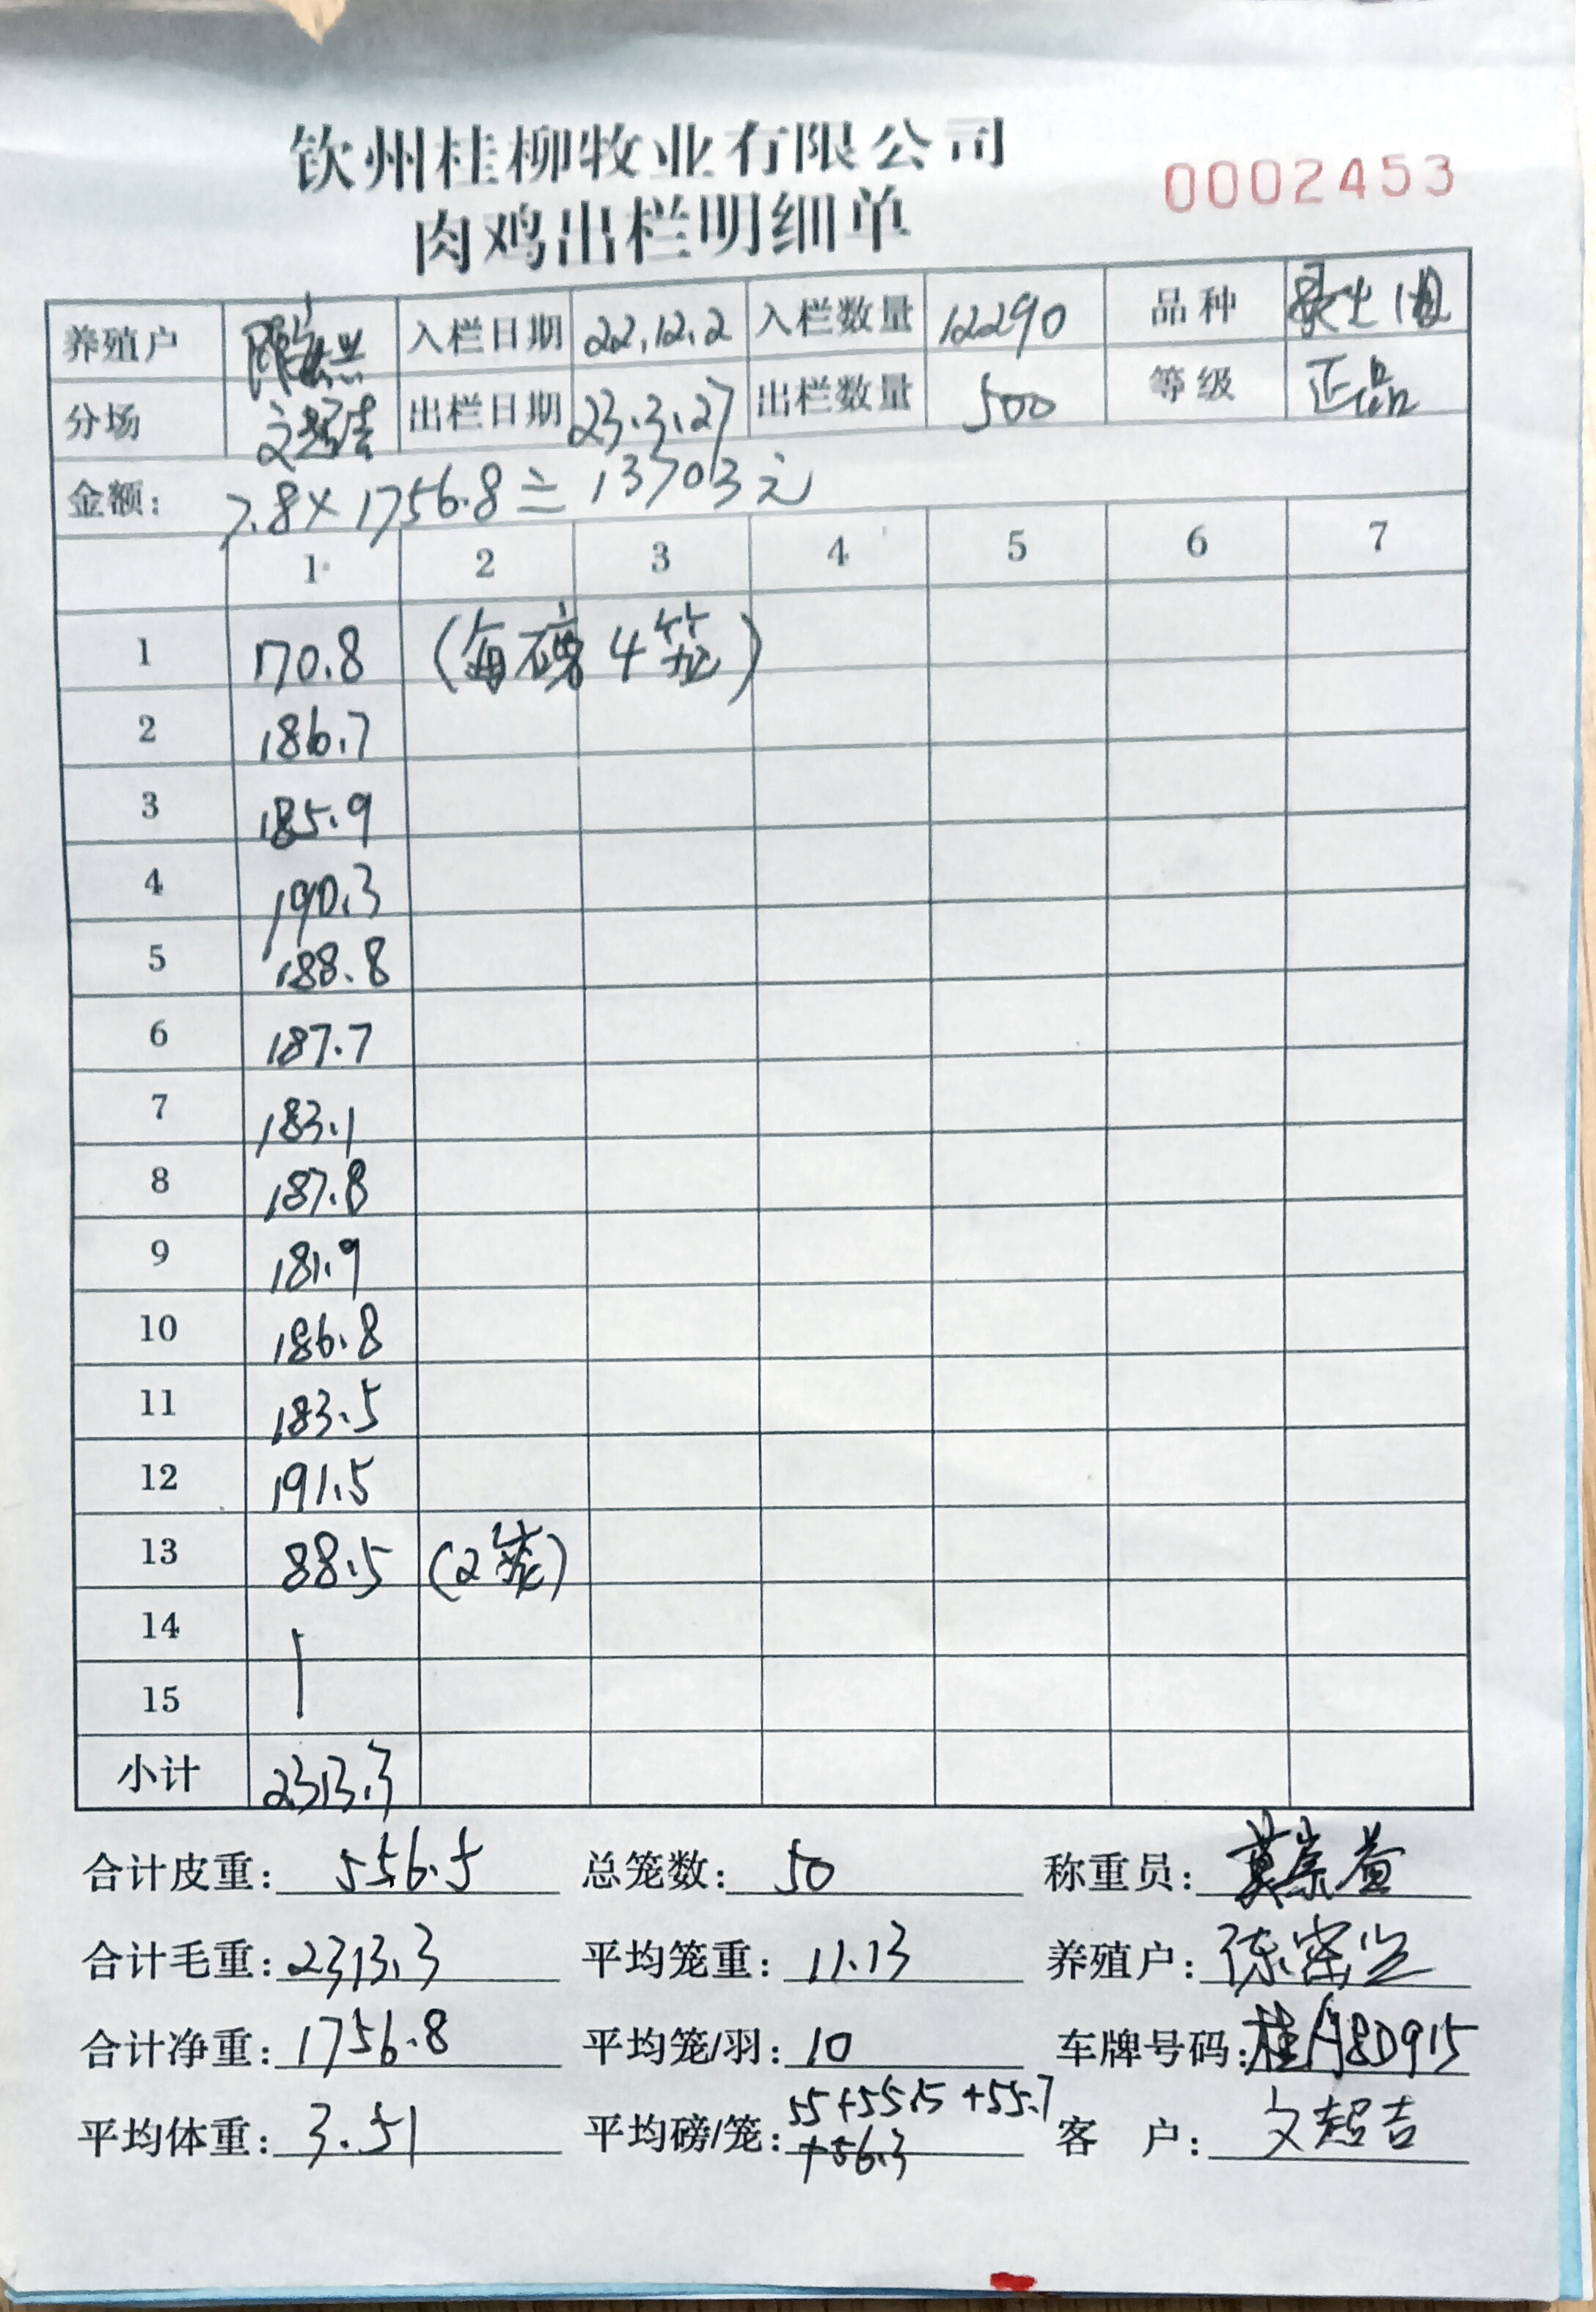 钦州桂柳牧业有限公司
肉鸡出栏明细单
0002453
养殖户 入栏日期 22.12.2 入栏数量 12290 品种
分场 出栏日期 23.3.27 出栏数量 500 等级 正品
金额: 7.8×1756.8=13703元
1 2 3 4 5 6 7
1 170.8 (每磅4笼)
2 186.7
3 185.9
4 190.3
5 188.8
6 187.7
7 183.1
8 187.8
9 181.9
10 186.8
11 183.5
12 191.5
13 88.5 (2笼)
14
15
小计 2313.3
合计皮重: 556.5 总笼数: 50 称重员:
合计毛重: 2313.3 平均笼重: 11.13 养殖户:
合计净重: 1756.8 平均笼/羽: 10 车牌号码: 桂A8D915
平均体重: 3.51 平均磅/笼: 55+55.15+55.7
+56.3 客 户: 文超吉